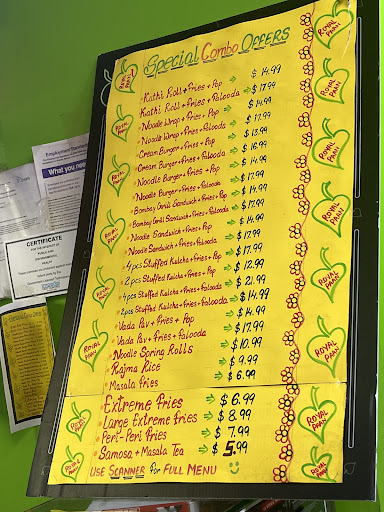 Special Combo OFFERS
Kathi Roll + fries + Pop → $ 14.99
Kathi Roll + fries + Falooda → $ 17.99
Noodle Wrap + fries + Pop → $ 14.99
Noodle Wrap + fries + Falooda → $ 17.99
Cream Burger + fries + Pop → $ 13.99
Cream Burger + fries + Falooda → $ 16.99
Noodle Burger + fries + Pop → $ 14.99
Noodle Burger + fries + Falooda → $ 17.99
Bombay Grill Sandwich + fries + Pop → $ 14.99
Bombay Grill Sandwich + fries + Falooda → $ 17.99
Noodle Sandwich + fries + Pop → $ 14.99
Noodle Sandwich + fries + Falooda → $ 17.99
4 pcs Stuffed Kulcha + fries + Pop → $ 17.99
2 pcs Stuffed Kulcha + fries + Pop → $ 12.99
4 pcs Stuffed Kulcha + fries + Falooda → $ 21.99
2 pcs Stuffed Kulcha + fries + Falooda → $ 14.99
Vada Pav + fries + Pop → $ 14.99
Vada Pav + fries + Falooda → $ 17.99
Noodle Spring Rolls → $ 10.99
Rajma Rice → $ 9.99
Masala fries → $ 6.99
Extreme fries → $ 6.99
Large Extreme fries → $ 8.99
Peri-Peri fries → $ 7.99
Samosa + Masala Tea → $ 5.99
USE SCANNER for FULL MENU
ROYAL PAAN
ROYAL PAAN
ROYAL PAAN
ROYAL PAAN
ROYAL PAAN
ROYAL PAAN
ROYAL PAAN
ROYAL PAAN
ROYAL PAAN
ROYAL PAAN
ROYAL PAAN
ROYAL PAAN
ROYAL PAAN
ROYAL PAAN
Employment Standards
What you need
CERTIFICATE